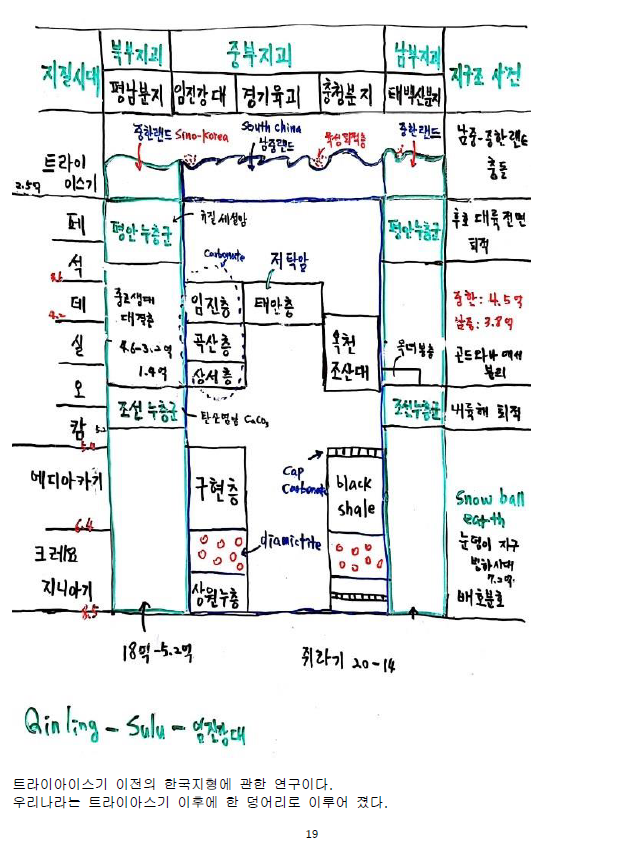 지질시대 북부지괴 중부지괴 남부지괴 지구조 사건
평남분지 임진강대 경기육괴 충청분지 태백산분지
중한랜드 Sino-Korea
South china
남중랜드
육성퇴적층
중한랜드
남중-중한랜드
충돌
트라이
아스기
2.5억
페
평안누층군
평안누층군
후로 대륙전면
퇴적
석
Carbonate
저탁암
데
중고생대
대결층
4.6-3.2억
1.4억
임진층
태안층
중한: 4.5억
남중: 3.8억
실
곡산층
옥천
조산대
곤드와나에서
분리
상서층
오
조선누층군
탄산염암 CaCO3
조선누층군
내륙해 퇴적
캄
에디아카기
구현층
Cap
Carbonate
black
shale
Snow ball
earth
눈덩이 지구
빙하시대
7.2억
6.4
크레요
지니아기
diamictite
상원누층
배호분호
8.5
18억-5.2억
쥐라기 20-14
Qinling - Sulu - 임진강대
트라이아이스기 이전의 한국지형에 관한 연구이다.
우리나라는 트라이아스기 이후에 한 덩어리로 이루어 졌다.
19